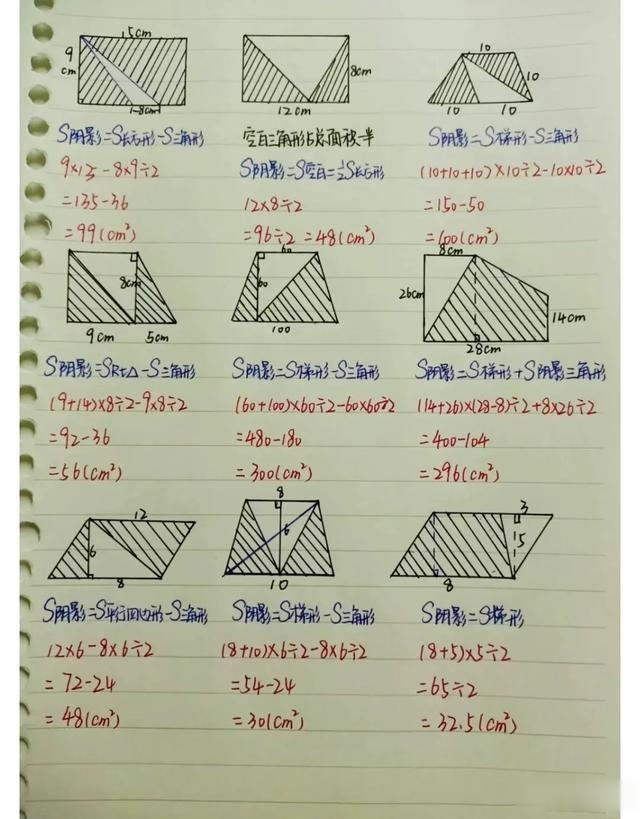 15cm
9
cm
8cm
8cm
12cm
10
10
10
10
S阴影=S长方形-S三角形
空白三角形占总面积一半
S阴影=S梯形-S三角形
9×15-8×9÷2
S阴影=S空白=½S长方形
(10+10+10)×10÷2-10×10÷2
=135-36
12×8÷2
=150-50
=99(cm²)
=96÷2=48(cm²)
=100(cm²)
8cm
9cm
5cm
60
60
100
8cm
26cm
14cm
28cm
S阴影=SRt△-S三角形
S阴影=S梯形-S三角形
S阴影=S梯形+S阴影三角形
(9+14)×8÷2-9×8÷2
(60+100)×60÷2-60×60÷2
(14+26)×(28-8)÷2+8×26÷2
=92-36
=480-180
=400-104
=56(cm²)
=300(cm²)
=296(cm²)
12
6
8
8
6
10
3
5
8
S阴影=S平行四边形-S三角形
S阴影=S梯形-S三角形
S阴影=S梯形
12×6-8×6÷2
(8+10)×6÷2-8×6÷2
(8+5)×5÷2
=72-24
=54-24
=65÷2
=48(cm²)
=30(cm²)
=32.5(cm²)